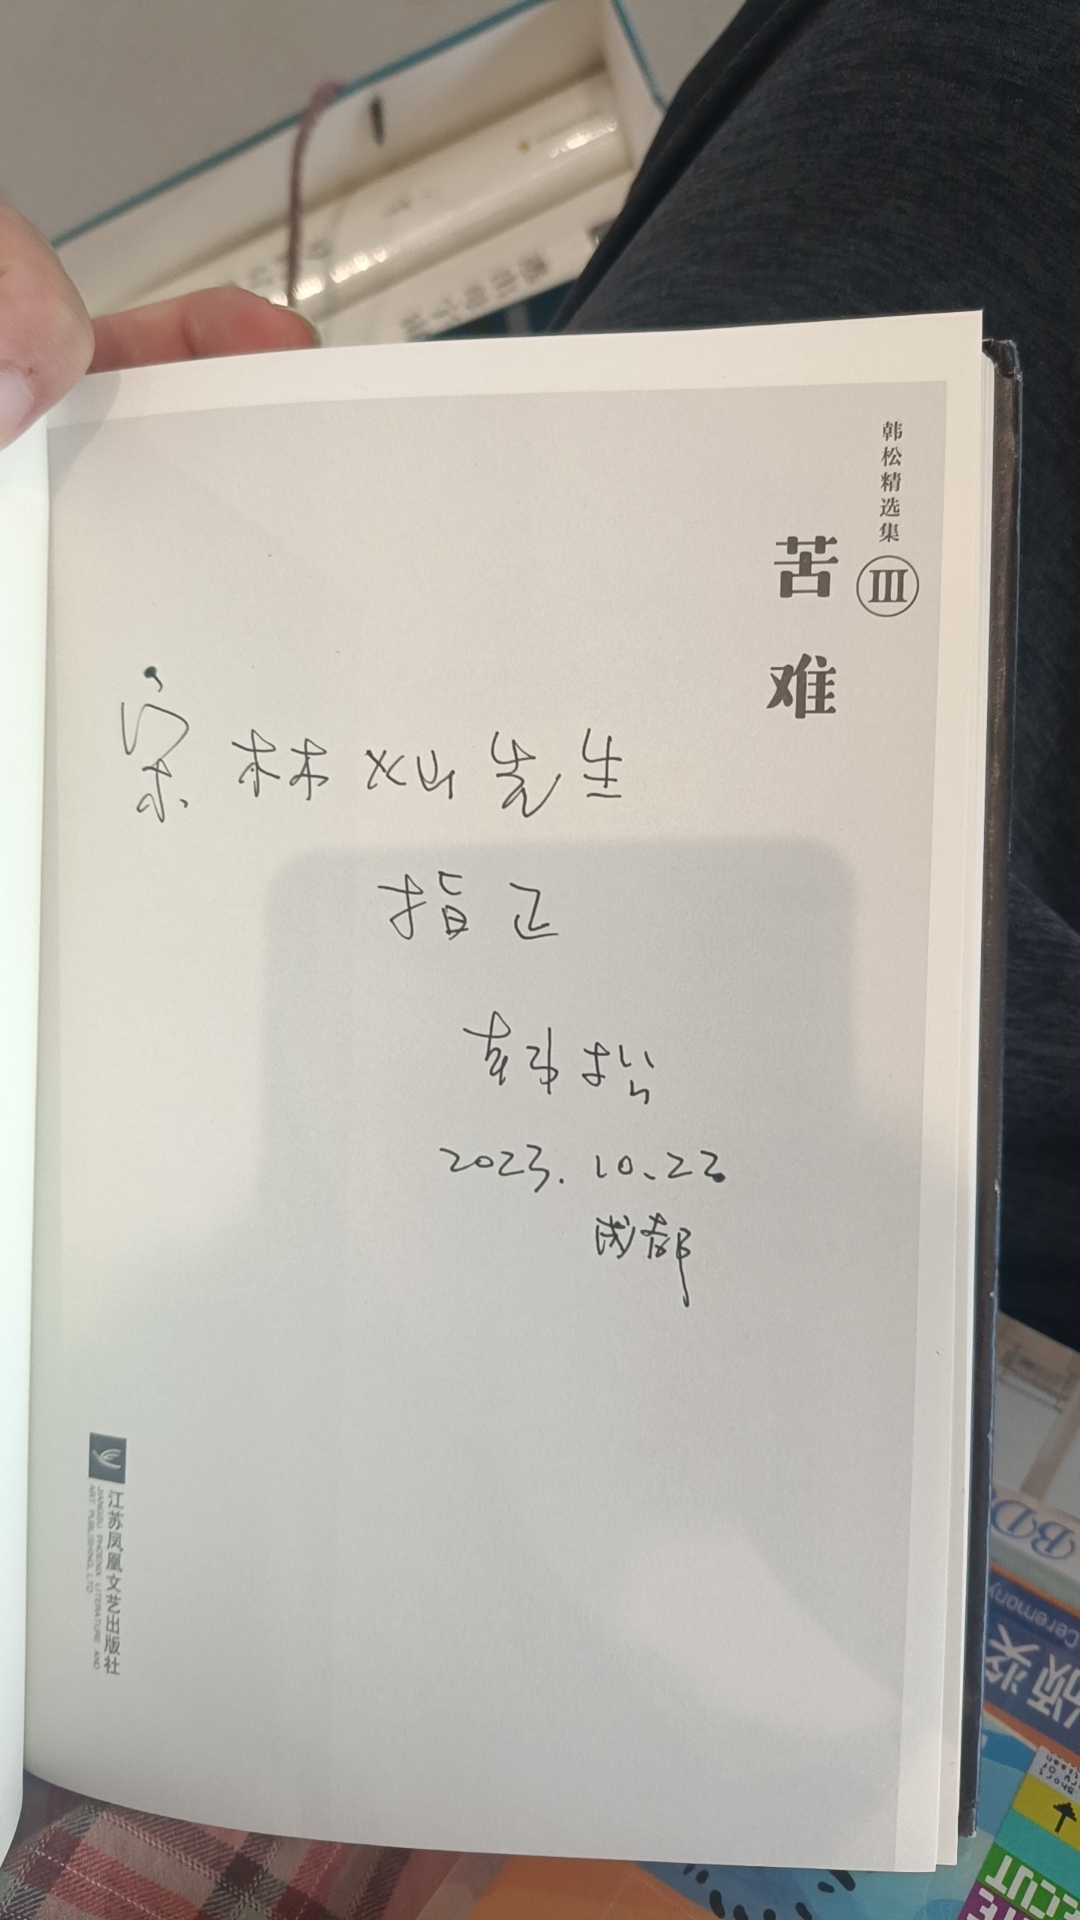 韩松精选集
III
苦难
宋林灿先生
指正
韩松
2023.10.22
成都
江苏凤凰文艺出版社
JIANGSU PHOENIX LITERATURE AND
ART PUBLISHING, LTD
BD
Ceremony
颁奖